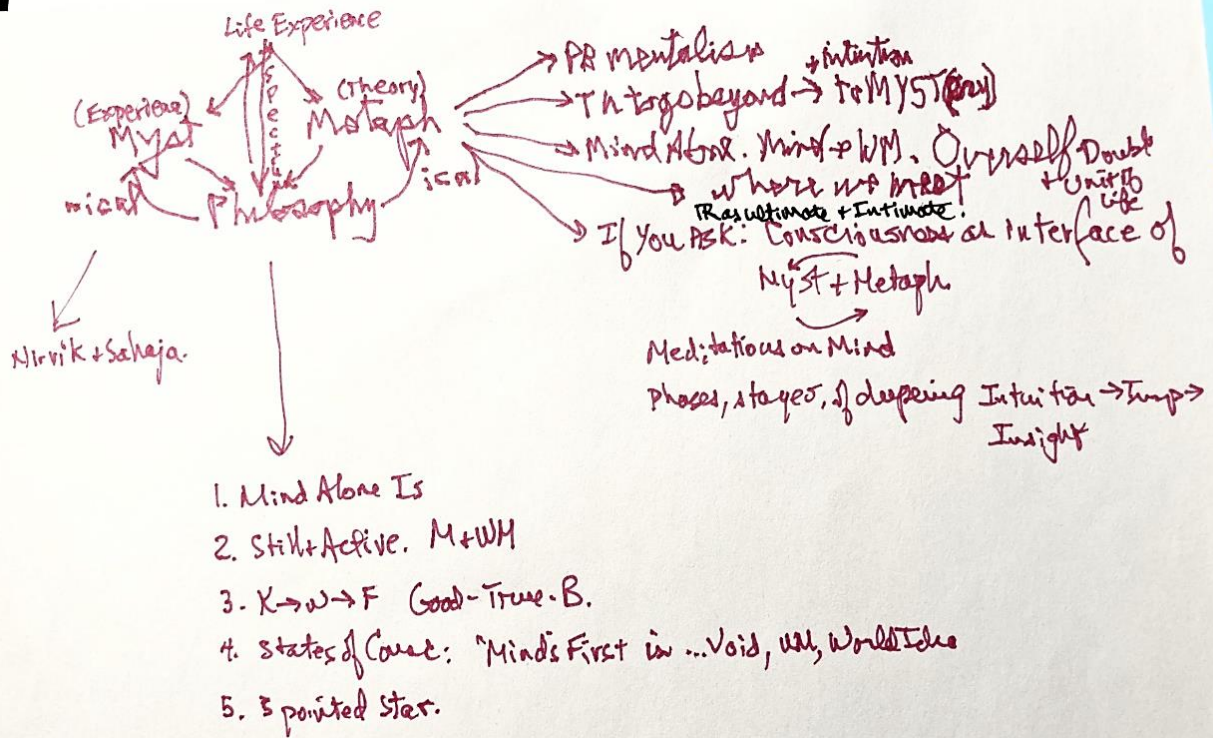 Life Experience
Aspects
(Experience)
Myst
mical
(Theory)
Metaph
ical
Philosophy
PB mentalism
+ intuition
to go beyond → to MYST(ery)
Mind Alone. Mind + WM. Overself Double
+ Unit of
Life
where we meet
as ultimate + Intimate.
If You Ask: Consciousness an interface of
Myst + Metaph.
Nirvik + Sahaja.
Meditations on Mind
phases, stages, of deepening Intuition → Jump →
Insight
1. Mind Alone Is
2. Still + Active. M + WM
3. K → W → F Good - True - B.
4. States of Consc: "Mind's First in ... Void, WM, World Idea
5. 5 pointed star.